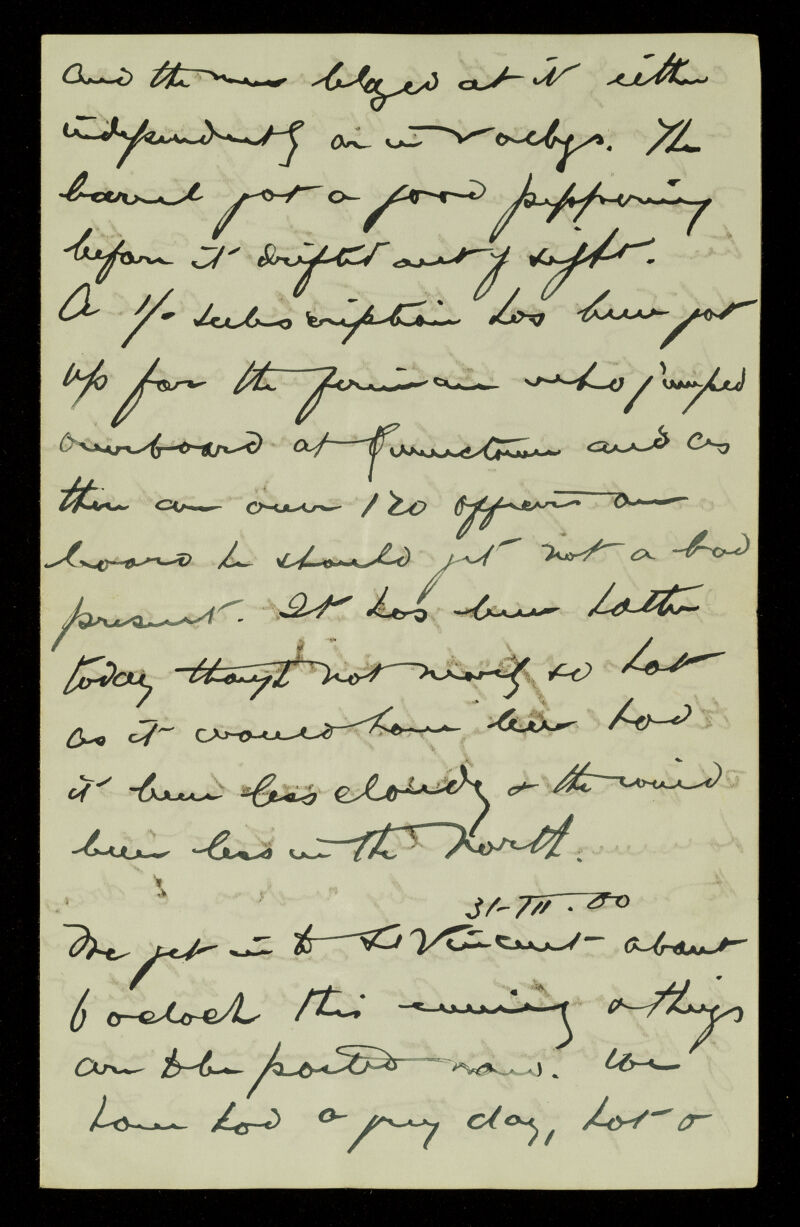 and the men blazed at it either
independently or in volleys. The
barrel got a good peppering
before it drifted out of sight.
A 1/- subscription has been got
up for the fireman who jumped
overboard at Queenstown and as
there are over 120 officers on
board he should get not a bad
present. It has been hotter
today though not nearly so hot
as it would have been had
it been less cloudy & the wind
been less in the North.
31-III.00
We get in to St Vincent about
6 oclock this evening & things
are to be posted now. We
have had a grey day, hot &